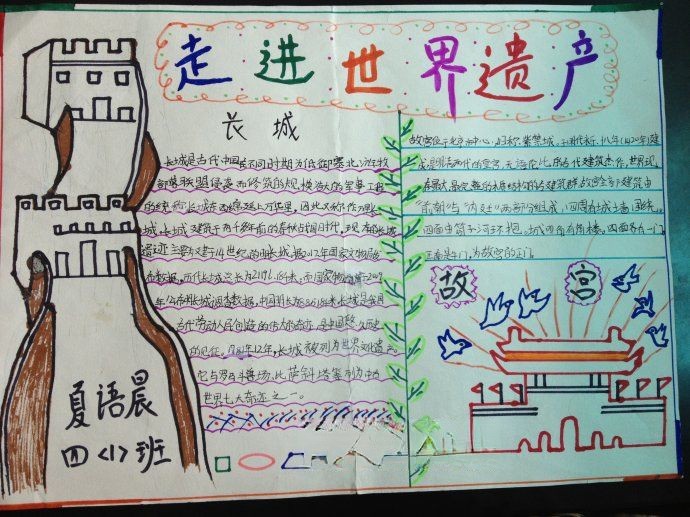 走进世界遗产
长城
长城是古代中国在不同时期为抵御塞北游牧
部落联盟侵袭而修筑的规模浩大的军事工程
的统称。长城东西绵延上万华里，因此又称作万里
长城。长城建筑于两千多年前的春秋战国时代，现存的长城
遗迹主要为建于14世纪的明长城。据2012年国家文物局发
布数据，历代长城总长为21196.18千米，而国家文物局2009
年公布明长城调查数据，中国明长城8851.8千米长城是我国
古代劳动人民创造的伟大奇迹，是中国悠久历史
的见证。1987年12月，长城被列为世界文化遗产。
它与罗马斗兽场、比萨斜塔等列为中古
世界七大奇迹之一。
故宫位于北京市中心，旧称紫禁城。
是明清两代的皇宫，无与伦比的古代建筑杰作，世界现
存最大、最完整的木质结构的古建筑群。故宫全部建筑由
“前朝”与“内廷”两部分组成，四周有城墙围绕。
四面由筒子河环抱。城四角有角楼。四面各有一门，
正南是午门，为故宫的正门。
故宫
夏语晨
四〈1〉班